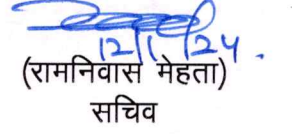 12/1/24.
(रामनिवास मेहता)
सचिव